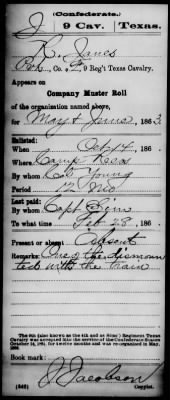 (Confederate.)
J 9 Cav. Texas.
R. Janes
Co. F, 9 Reg't Texas Cavalry.
Appears on
Company Muster Roll
of the organization named above,
for May & June, 1863
Enlisted:
When Oct 14, 186
Where Camp Reas
By whom Col Young
Period 12 Mo
Last paid:
By whom Capt Sim
To what time Feb 28, 186
Present or absent Absent
Remarks: One of the dismoun
ted with the train
The 9th (also known as the 4th and as Sims') Regiment Texas
Cavalry was accepted into the service of the Confederate States
October 14, 1861, for twelve months and was reorganized in May,
1862.
Book mark:
J. Jacobson
(642) Copyist.